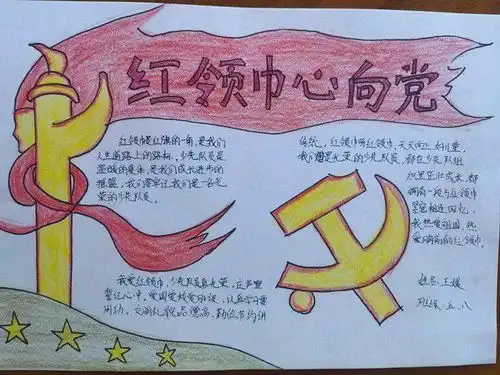 红领巾心向党
红领巾是红旗的一角,是我们
人生道路上的路标,少先队员是
温暖的集体,是我们成长进步的
摇篮,我们遵守让我们是一名光
荣的少先队员。
传统,红领巾啊红领巾,天天向上好儿童,
我们都是光荣的少先队员,都在少先队组
织里茁壮成长,都
拥有一段与红领巾
紧密相连回忆,
我热爱祖国,热
爱胸前的红领巾。
我爱红领巾,少先队员真光荣,庄严
誓记心中,爱国爱校爱班级,认真学习要
用功,文明礼貌品德高,勤俭节约讲
姓名:王媛
班级:五、八